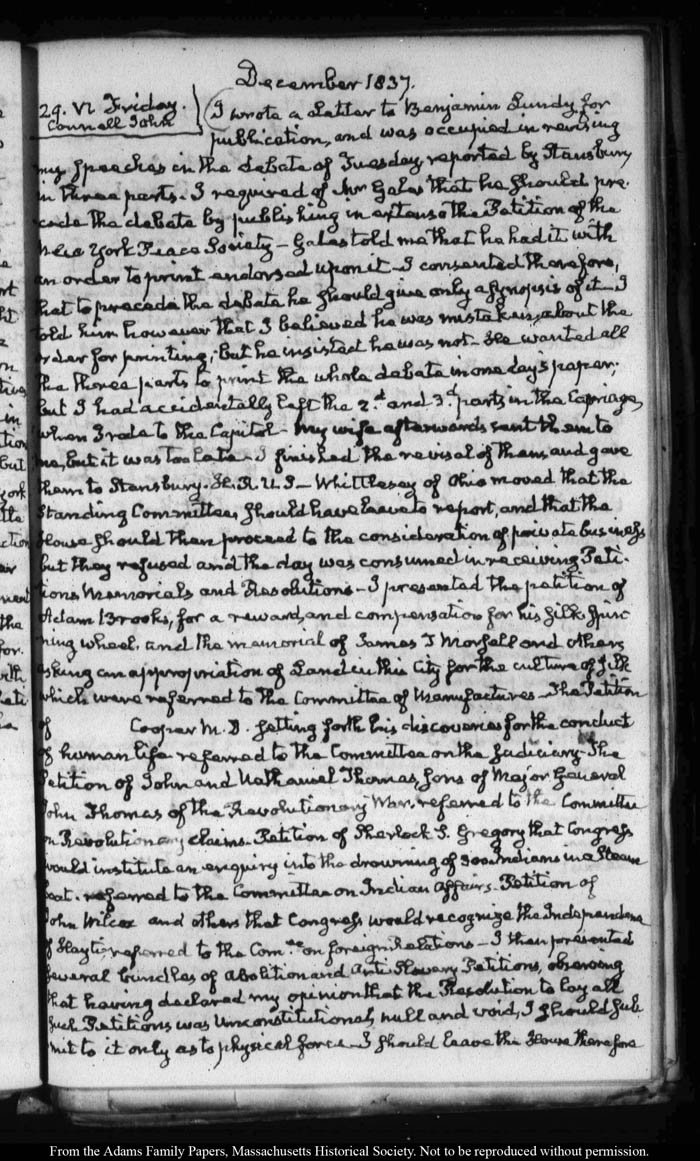 December 1837.
29. VI. Friday.
Connell John
I wrote a Letter to Benjamin Lundy for
publication, and was occupied in revising
my Speeches in the debate of Tuesday reported by Stansbury
in three parts. I required of Mr Gales that he should pre-
cede the debate by publishing in extenso the Petition of the
New York Peace Society – Gales told me that he had it with
an order to print endorsed upon it – I consented therefore,
that to precede the debate he should give only a synopsis of it – I
told him however that I believed he was mistaken, about the
order for printing; but he insisted he was not. He wanted all
the three parts to print the whole debate in one day's paper;
but I had accidentally left the 2.d and 3.d parts in the Carriage,
when I rode to the Capitol – My wife afterwards sent them to
me, but it was too late – I finished the revisal of them, and gave
them to Stansbury. H.R.U.S – Whittlesey of Ohio moved that the
Standing Committees should have leave to report, and that the
House should then proceed to the consideration of private business
but they refused and the day was consumed in receiving Peti-
tions Memorials and Resolutions – I presented the petition of
Adam Brooks, for a reward, and compensation for his Silk Spin
ning wheel. and the memorial of James T and others
asking an appropriation of Land in this City for the culture of Silk
which were referred to the Committee of Manufactures – The Petition
of Cooper M.D. setting forth his discoveries for the conduct
of human life referred to the Committee on the Judiciary – The
Petition of John and Nathaniel Thomas, Sons of Major General
John Thomas of the Revolutionary War, referred to the Committee
on Revolutionary claims – Petition of Sherlock S. Gregory that Congress
would institute an enquiry into the drowning of 300 Indians in a Steam
boat. referred to the Committee on Indian Affairs – Petition of
John Wilcox and others that Congress would recognize the Independence
of Hayti referred to the Com.ee on foreign Relations – I then presented
several bundles of Abolition and Anti Slavery Petitions, observing
that having declared my opinion that the Resolution to lay all
such Petitions was Unconstitutional, null and void, I should sub-
mit to it only as to physical force – I should leave the House therefore
From the Adams Family Papers, Massachusetts Historical Society. Not to be reproduced without permission.